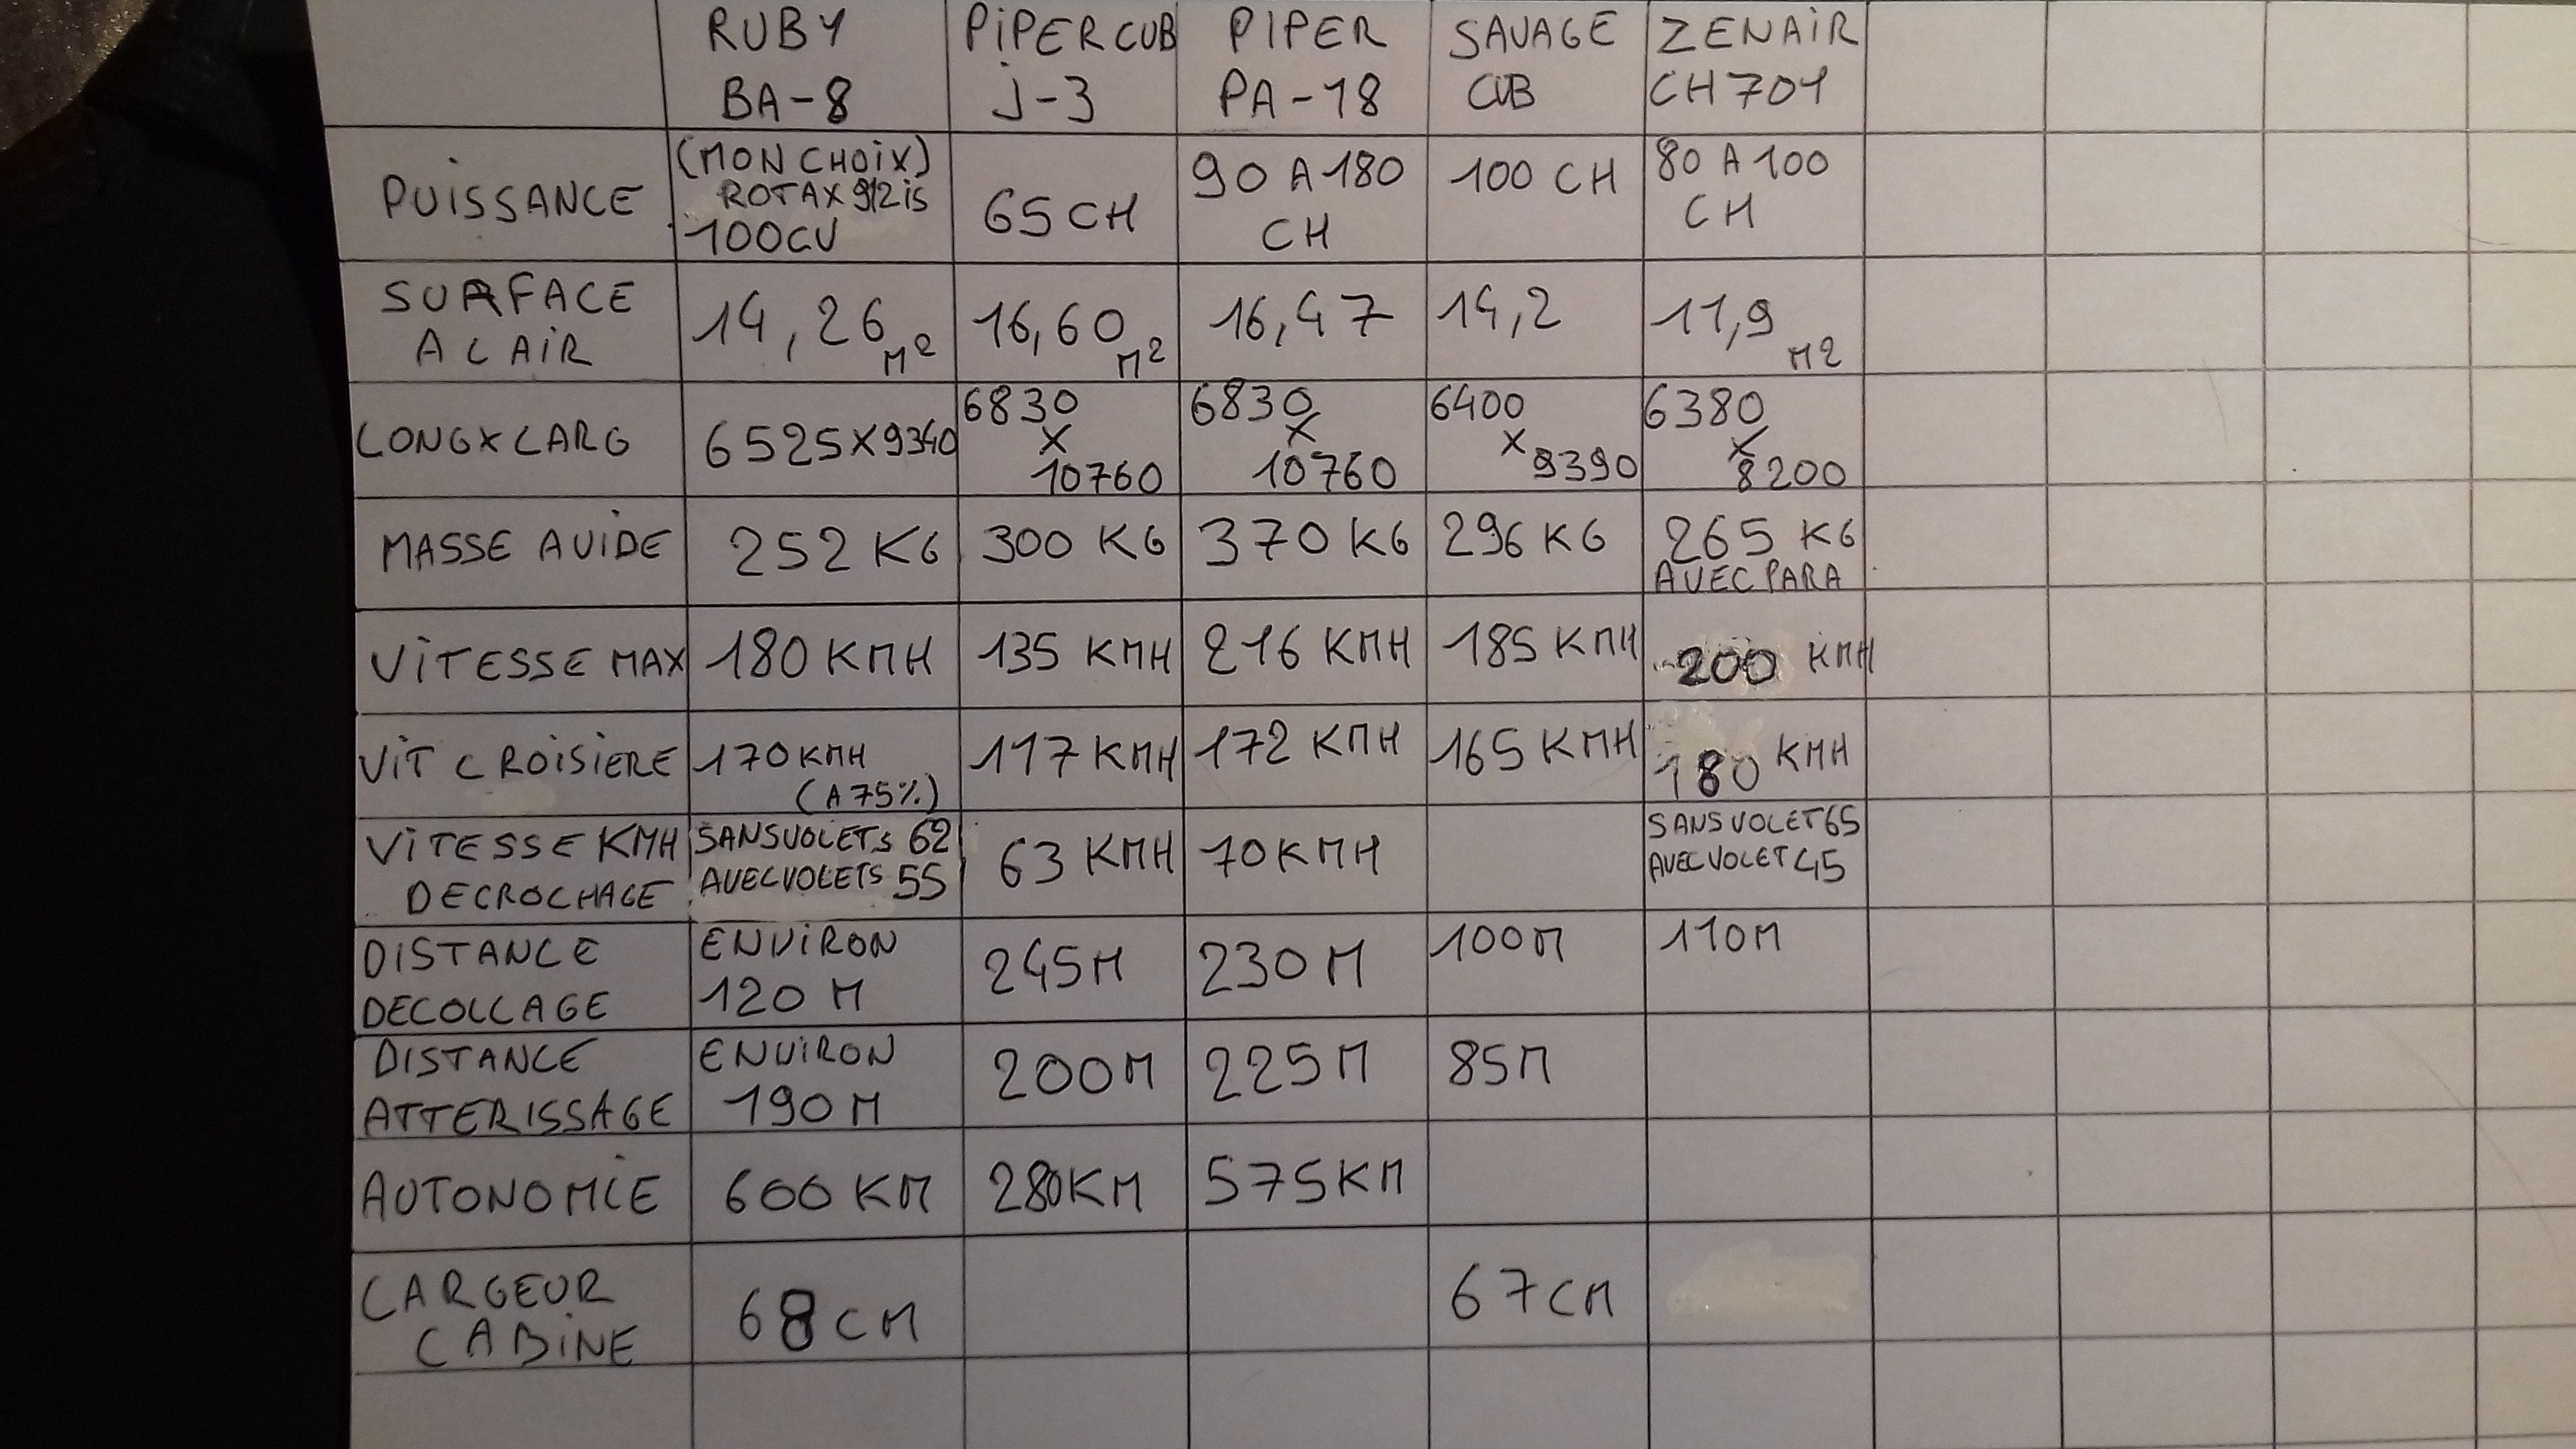 RUBY PIPER CUB PIPER SAVAGE ZENAIR
BA-8 J-3 PA-18 CUB CH701
PUISSANCE (MON CHOIX) ROTAX 912is 100CV 65 CH 90 A 180 CH 100 CH 80 A 100 CH
SURFACE A L AIR 14,26 M2 16,60 M2 16,47 14,2 11,9 M2
LONG X LARG 6525X9340 6830 X 10760 6830 X 10760 6400 X 9390 6380 X 8200
MASSE A VIDE 252 KG 300 KG 370 KG 296 KG 265 KG AVEC PARA
VITESSE MAX 180 KMH 135 KMH 216 KMH 185 KMH 200 KMH
VIT CROISIERE 170 KMH (A 75%) 117 KMH 172 KMH 165 KMH 180 KMH
VITESSE KMH DECROCHAGE SANS VOLETS 62 AVEC VOLETS 55 63 KMH 70 KMH SANS VOLET 65 AVEC VOLET 45
DISTANCE DECOLLAGE ENVIRON 120 M 245 M 230 M 100 M 110 M
DISTANCE ATTERISSAGE ENVIRON 190 M 200 M 225 M 85 M
AUTONOMIE 600 KM 280 KM 575 KM
LARGEUR CABINE 68 CM 67 CM